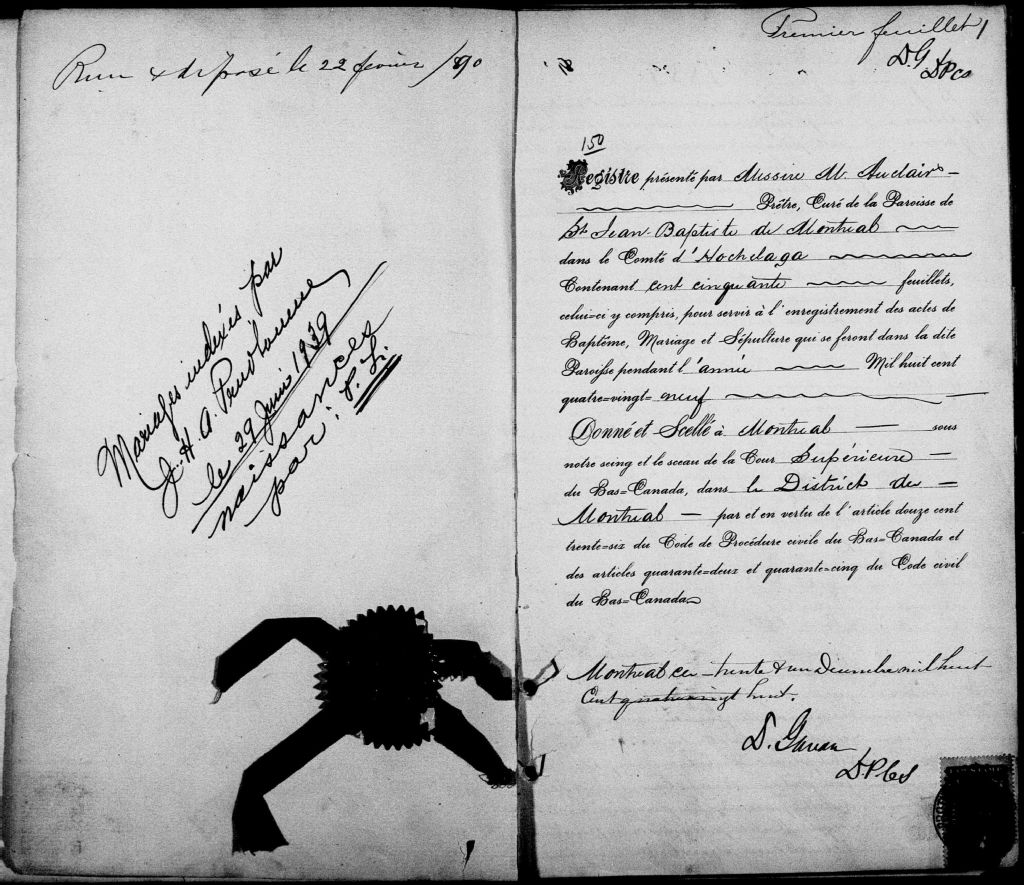 & déposé le 22 février /90
Mariages indexés par
J. H. A.
le 29 Juin 1939
naissances
par : P. L.
Premier feuillet 1
D.G
DPCS
150
Registre présenté par Messire M. Auclair
Prêtre, Curé de la Paroisse de
St Jean-Baptiste de Montreal
dans le Comté d'Hochelaga
Contenant cent cinquante feuillets,
celui=ci y compris, pour servir à l'enregistrement des actes de
Baptême, Mariage et Sépulture qui se feront dans la dite
Paroisse pendant l'année Mil huit cent
quatre=vingt= neuf
Donné et Scellé à Montreal sous
notre seing et le sceau de la Cour Supérieure
du Bas=Canada, dans le District de
Montreal par et en vertu de l'article douze cent
trente=six du Code de Procédure civile du Bas=Canada et
des articles quarante=deux et quarante=cinq du Code civil
du Bas=Canada
Montreal ce trente & un Decembre mil huit
Cent quatrevingt huit.
D.
DPCS